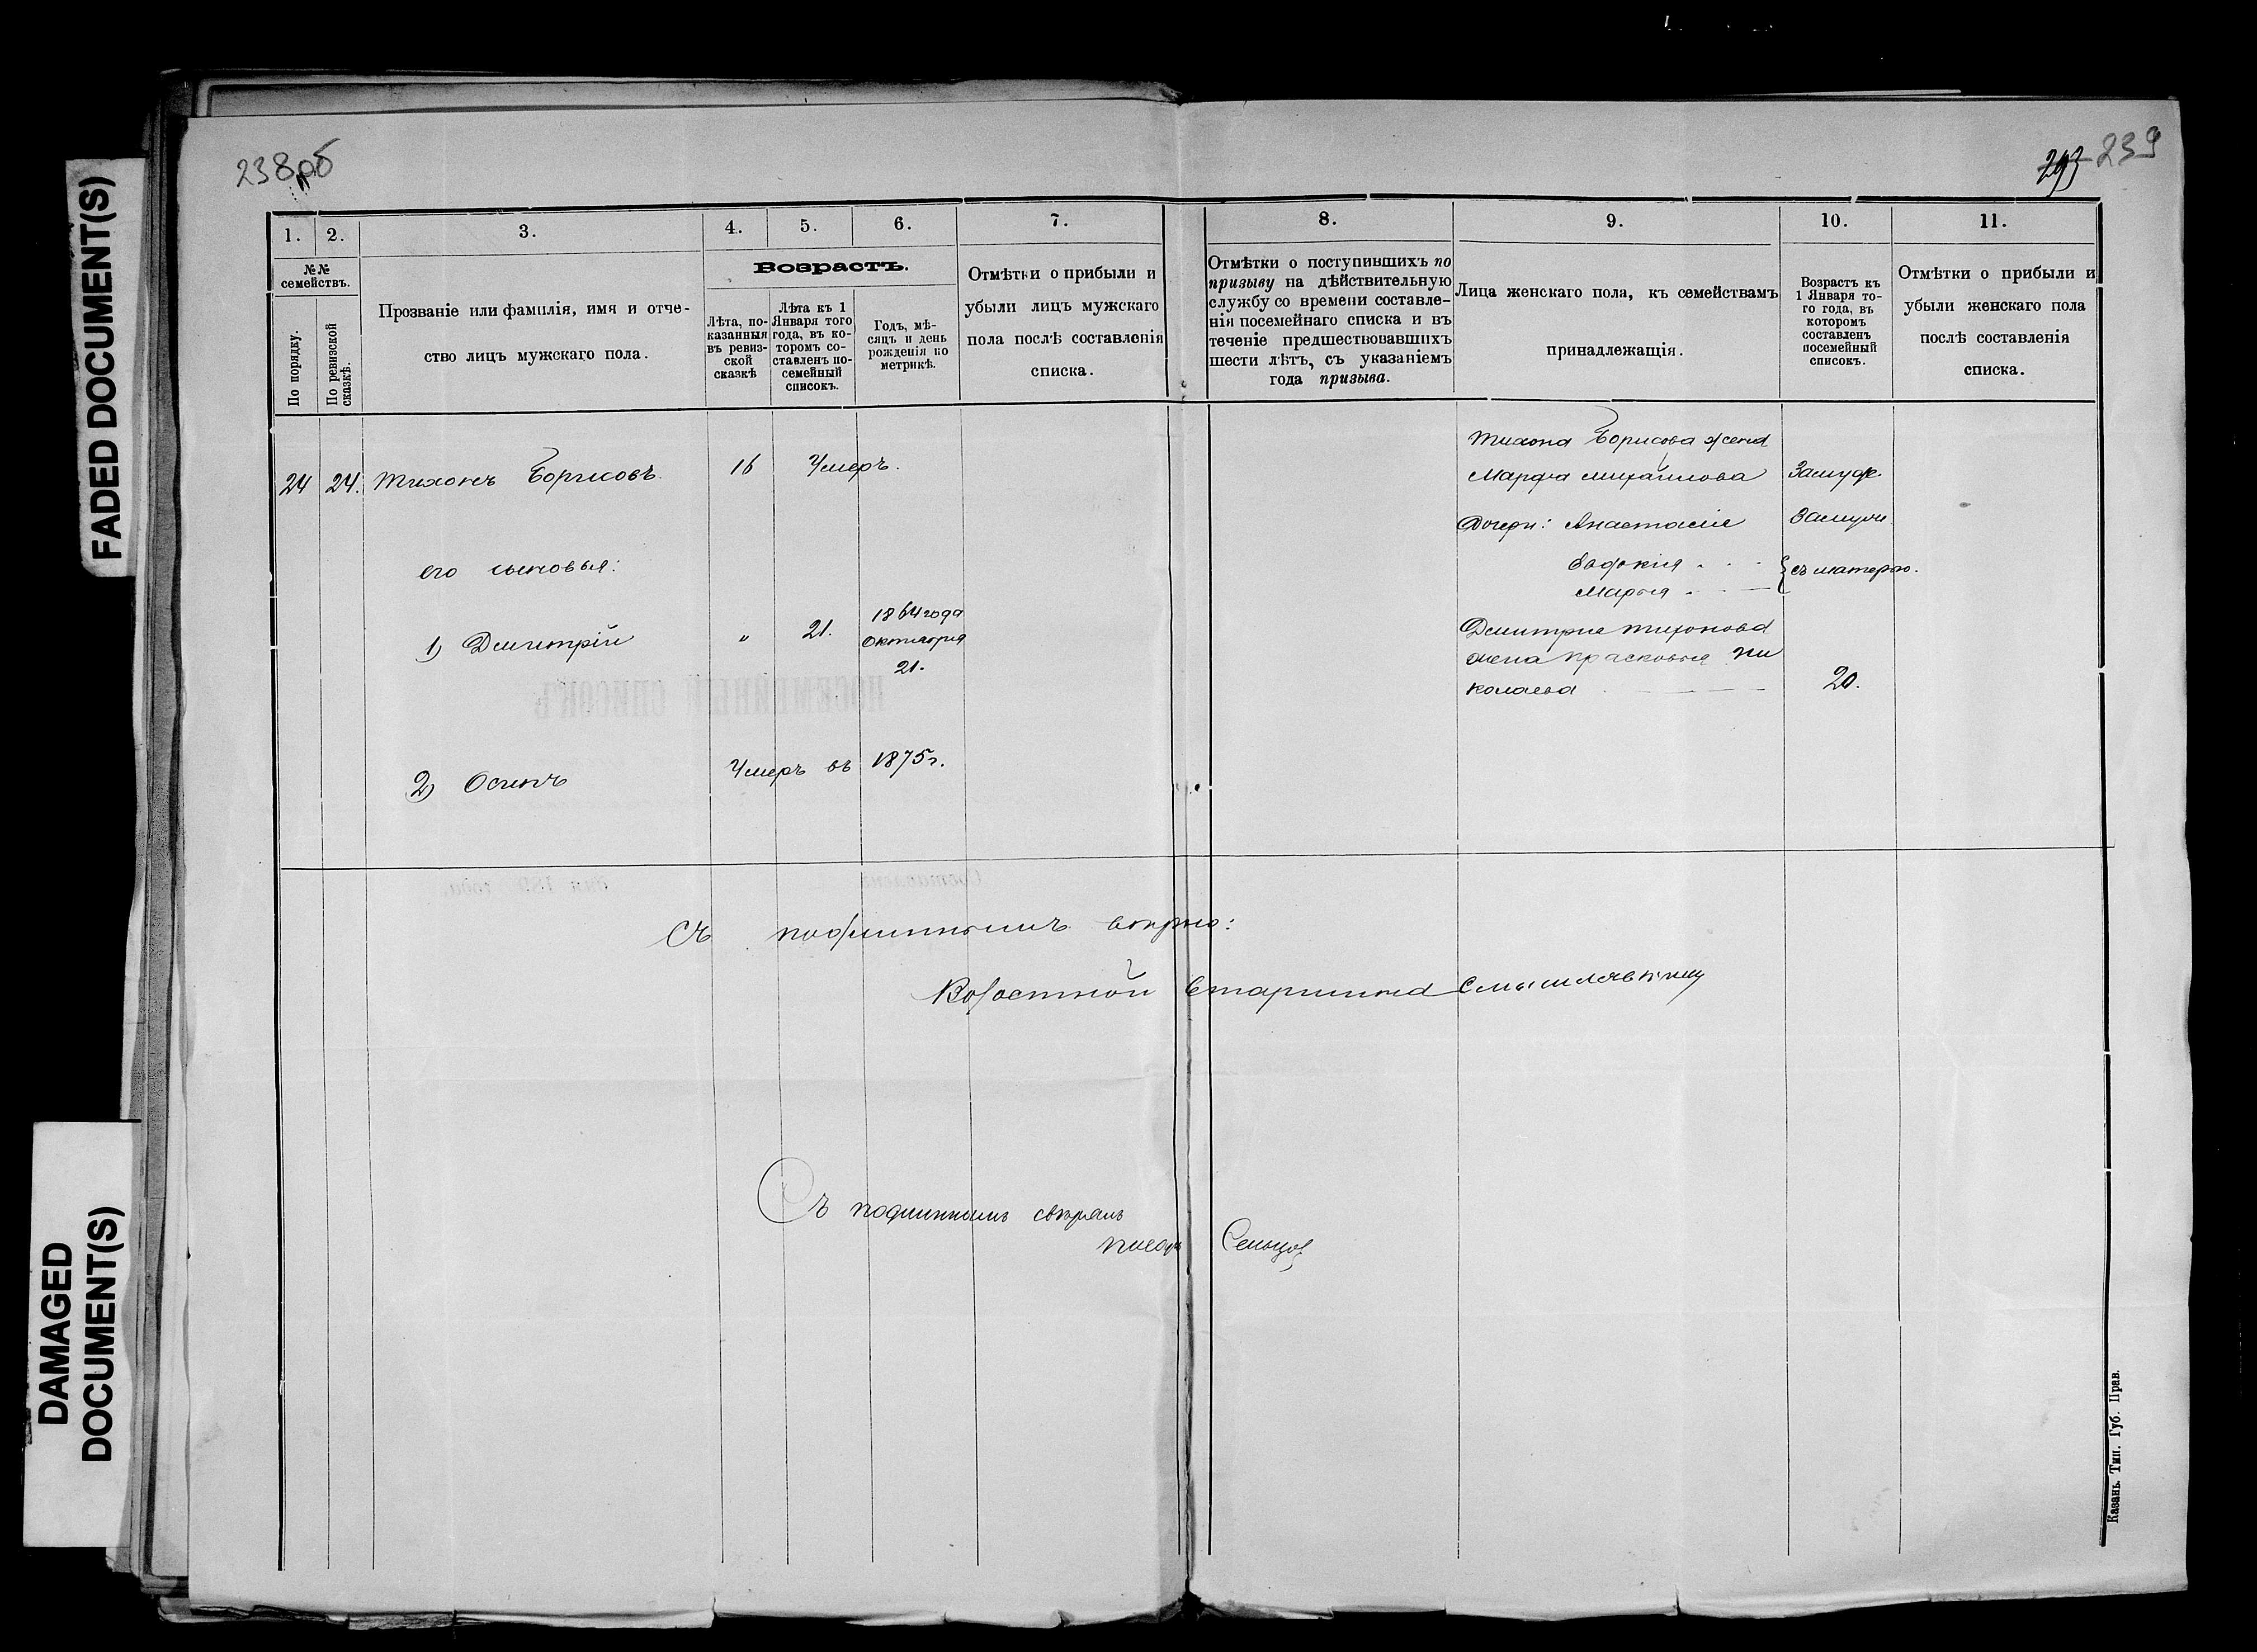 FADED DOCUMENT(S)
DAMAGED
DOCUMENT(S)
238 об
293 239
1.
2.
3.
4.
5.
6.
7.
8.
9.
10.
11.
№№
семействъ.
По порядку.
По ревизской
сказкѣ.
Прозваніе или фамилія, имя и отче-
ство лицъ мужскаго пола.
Возрастъ.
Лѣта, по-
казанныя
въ ревиз-
ской
сказкѣ
Лѣта къ 1
Января того
года, въ ко-
торомъ со-
ставленъ по-
семейный
списокъ.
Годъ, мѣ-
сяцъ и день
рожденія по
метрикѣ.
Отмѣтки о прибыли и
убыли лицъ мужскаго
пола послѣ составленія
списка.
Отмѣтки о поступившихъ по
призыву на дѣйствительную
службу со времени составле-
нія посемейнаго списка и въ
теченіе предшествовавшихъ
шести лѣтъ, съ указаніемъ
года призыва.
Лица женскаго пола, къ семействамъ
принадлежащія.
Возрастъ къ
1 Января то-
го года, въ
которомъ
составленъ
посемейный
списокъ.
Отмѣтки о прибыли и
убыли женскаго пола
послѣ составленія
списка.
24 24. Тихонъ Борисовъ 16 Умеръ.
его сыновья:
1) Дмитрій " 21. 1864 года
Октября
21.
2) Осипъ Умеръ въ 1875 г.
Тихона Борисова жена
Марфа Михайлова Замуж.
Дочери: Анастасія Замуж.
Евдокія
Марья
съ матерью.
Дмитрія Тихонова
жена Прасковья Ни
колаева 20.
Съ подлиннымъ вѣрно:
Волостной Старшина
Съ подлиннымъ свѣрялъ
писарь
Казань. Тип. Губ. Прав.